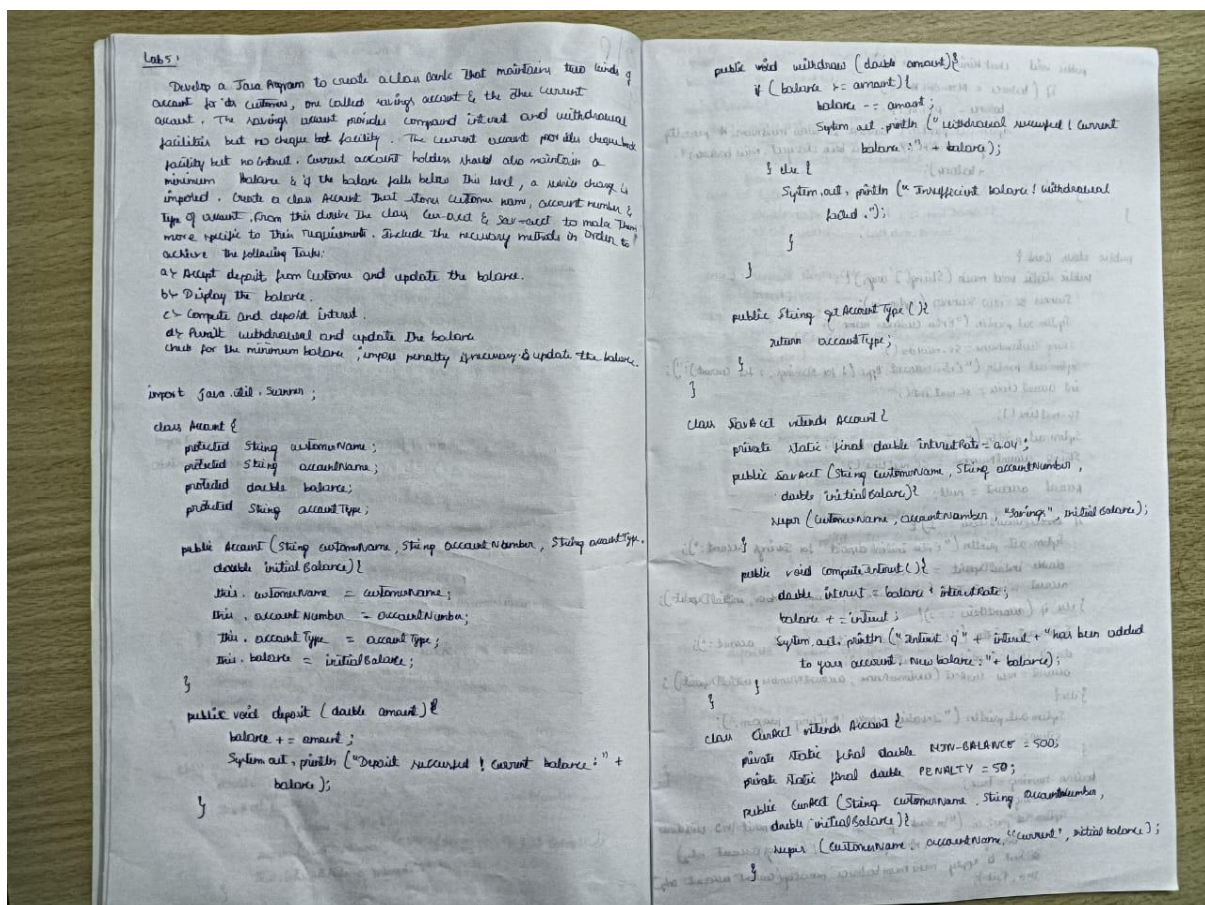 Lab 5:
Develop a Java Program to create a class bank that maintains two kinds of
account for its customers, one called savings account & the other current
account. The savings account provides compound interest and withdrawal
facilities but no cheque book facility. The current account provides cheque book
facility but no interest. Current account holders should also maintain a
minimum Balance & if the balance falls below this level, a service charge is
imposed. Create a class Account that stores customer name, account number &
Type of account. From this derive the class Cur-acct & Sav-acct to make them
more specific to their requirements. Include the necessary methods in order to
achieve the following Tasks:
a> Accept deposit from Customer and update the balance.
b> Display the balance.
c> Compute and deposit interest.
d> Permit withdrawal and update the balance
check for the minimum balance, impose penalty if necessary & update the balance.
import java.util.Scanner;
class Account {
protected String customerName;
protected String accountName;
protected double balance;
protected String accountType;
public Account (String customerName, String account Number, String accountType,
double initialBalance){
this. customerName = customerName;
this. accountNumber = accountNumber;
this. accountType = accountType;
this. balance = initialBalance;
}
public void deposit (double amount){
balance += amount;
System.out.println ("Deposit successful! Current balance:" +
balance);
}
public void withdraw (double amount){
if (balance >= amount){
balance -= amount;
System.out.println ("withdrawal successful! Current
balance:" + balance);
} else {
System.out.println ("Insufficient balance! withdrawal
failed.");
}
}
public String getAccountType(){
return accountType;
}
}
class SavAcct extends Account {
private static final double interestRate = 0.04;
public SavAcct (String customerName, String accountNumber,
double initialBalance){
super (customerName, accountNumber, "Savings", initialBalance);
}
public void computeInterest(){
double interest = balance * interestRate;
balance += interest;
System.out.println ("Interest of" + interest + "has been added
to your account. New balance:"+ balance);
}
}
class CurAcct extends Account {
private static final double MIN-BALANCE = 500;
private static final double PENALTY = 50;
public CurAcct (String customerName, String accountNumber,
double initialBalance){
super (customerName, accountName, "Current", initialbalance);
}